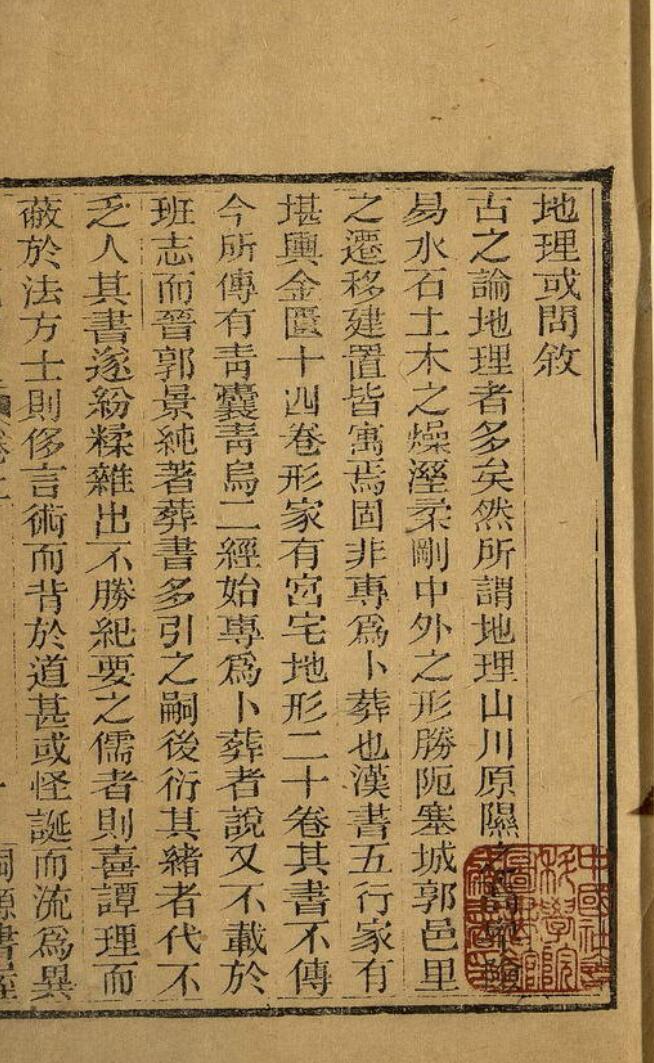 地理或問敘
古之論地理者多矣然所謂地理山川原隰之高卑險
易水石土木之燥溼柔剛中外之形勝阨塞城郭邑里
之遷移建置皆寓焉固非專爲卜葬也漢書五行家有
堪輿金匱十四卷形家有宮宅地形二十卷其書不傳
今所傳有青囊青烏二經始專爲卜葬者說又不載於
班志而晉郭景純著葬書多引之嗣後衍其緒者代不
乏人其書遂紛糅雜出不勝紀要之儒者則喜譚理而
蔽於法方士則侈言術而背於道甚或怪誕而流爲異
中國社會
科學院
圖書館